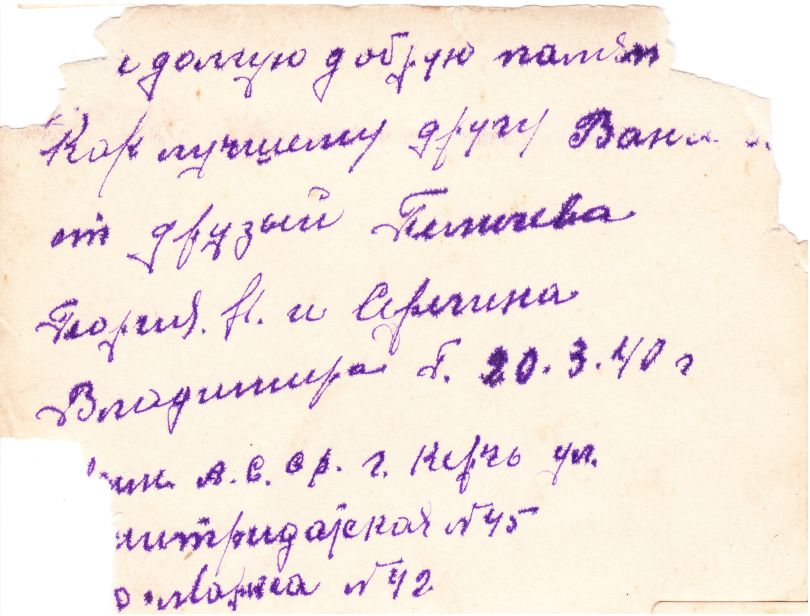 долгую добрую памят
Как лучшему другу Ване
от друзый
Георгия. Н. и
Владимира Г. 20.3.40 г
А.С.СР. г. Керчь ул.
митридатская №45
Маркса №42